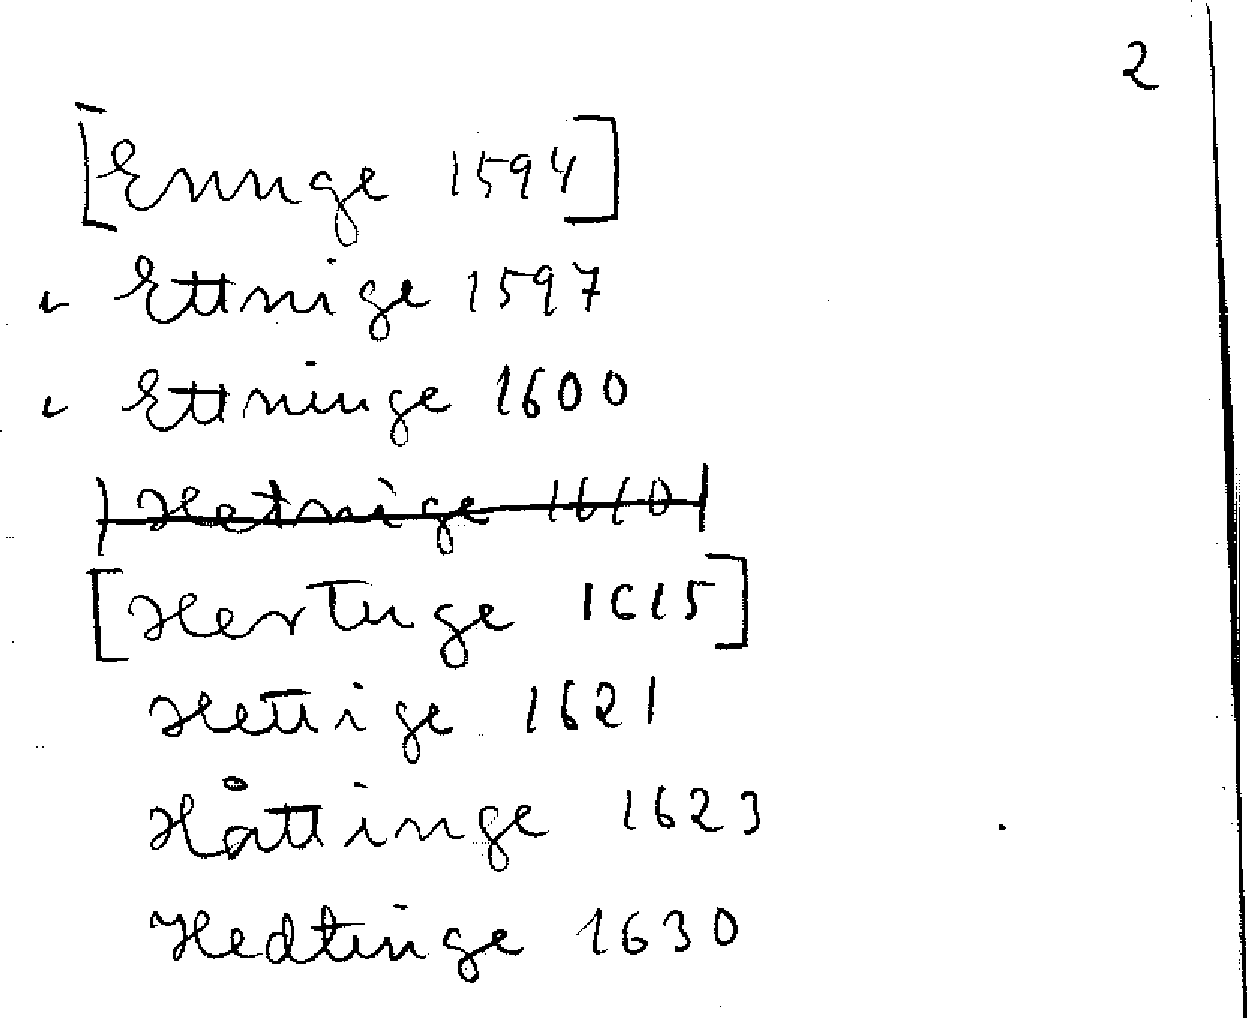 2
[Ennge 1594]
Ettnige 1597
Ettninge 1600
Hetnige 1610
[Hertuge 1615]
Hettige 1621
Håttinge 1623
Hedtinge 1630